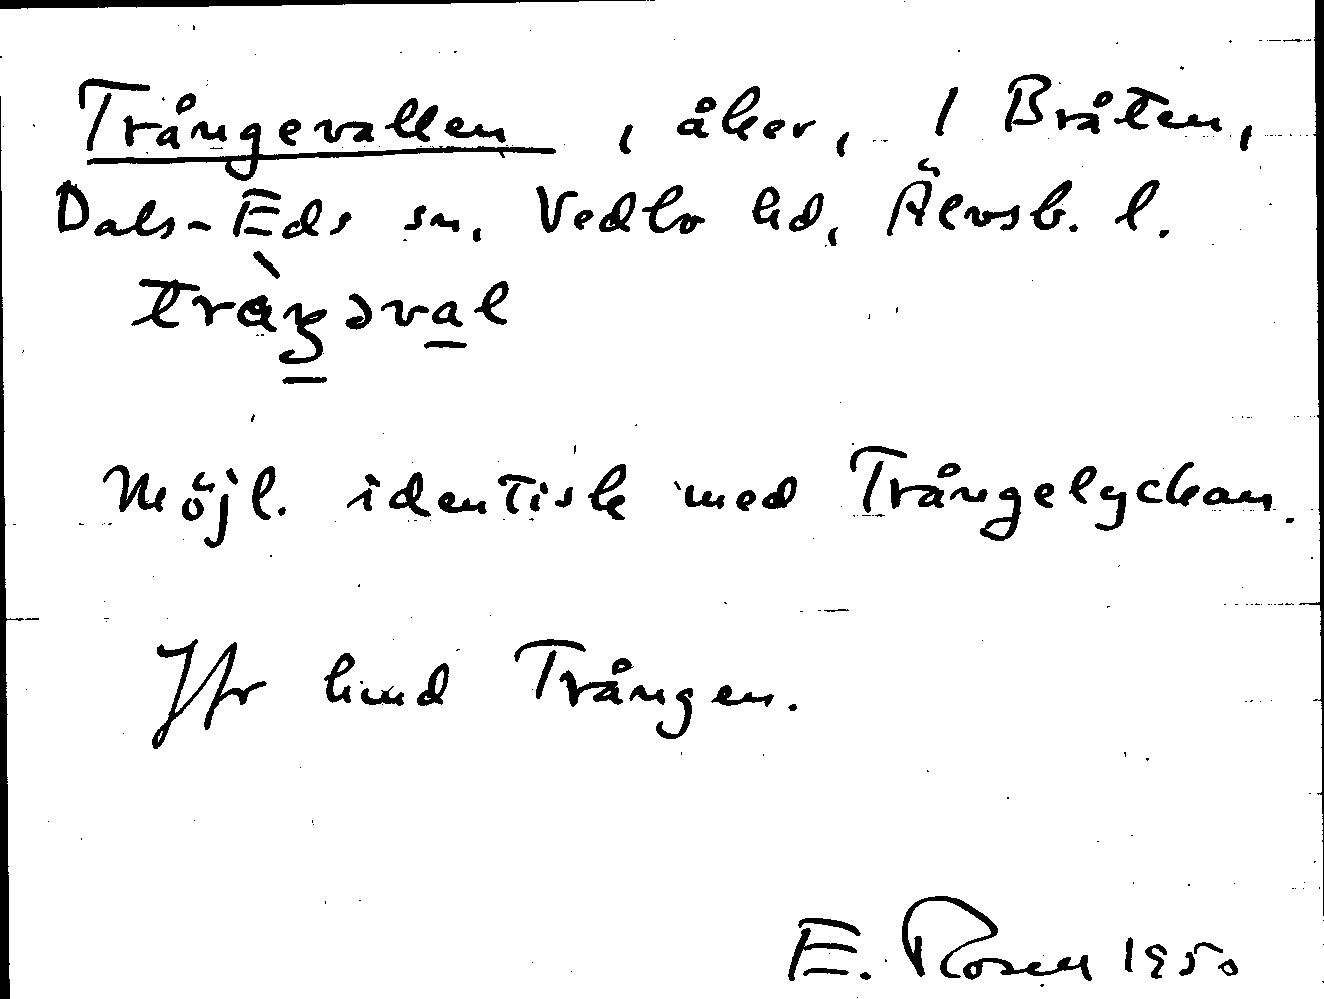 Trångevallen, åker, 1 Bråten,
Dals-Eds sn, Vedbo hd, Älvsb. l.
tràŋəval
Möjl. identisk med Trångelyckan.
Jfr hmd Trången.
E. Rosell 1950